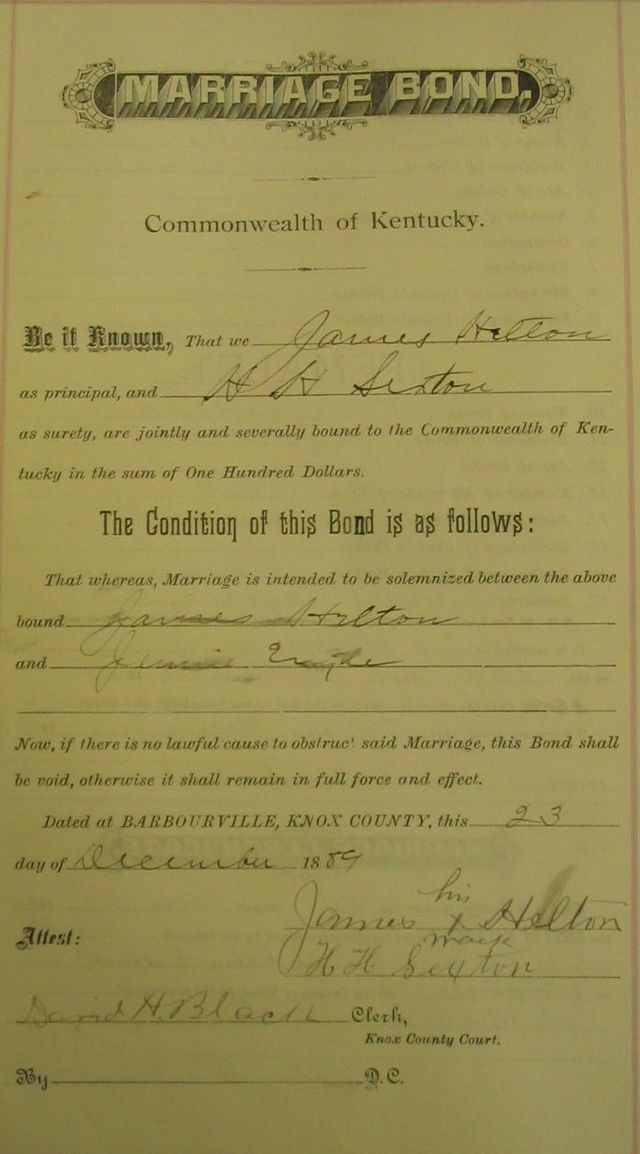 MARRIAGE BOND.
Commonwealth of Kentucky.
Be it Known, That we James Hilton
as principal, and H H Sexton
as surety, are jointly and severally bound to the Commonwealth of Ken-
tucky in the sum of One Hundred Dollars.
The Condition of this Bond is as follows:
That whereas, Marriage is intended to be solemnized between the above
bound James Hilton
and Jennie
Now, if there is no lawful cause to obstruct said Marriage, this Bond shall
be void, otherwise it shall remain in full force and effect.
Dated at BARBOURVILLE, KNOX COUNTY, this 23
day of December 1889
his
James x Hilton
mark
Attest:
H H Sexton
David H. Black Clerk,
Knox County Court.
By D.C.